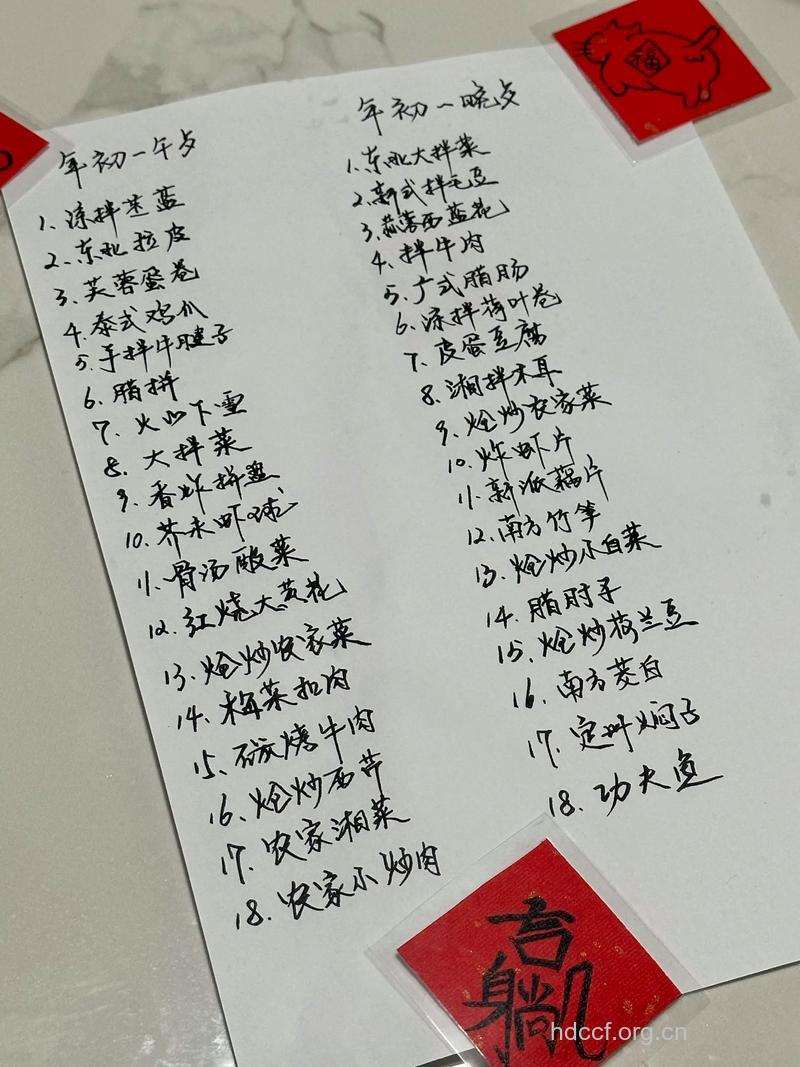 年初一午点
1. 凉拌芝蓝
2. 东北拉皮
3. 芙蓉蛋卷
4. 泰式鸡爪
5. 手拌牛腱子
6. 腊拼
7. 火山下雪
8. 大拌菜
9. 香炸拼盘
10. 芥末虾球
11. 骨汤酸菜
12. 红烧大黄花
13. 炝炒农家菜
14. 梅菜扣肉
15. 碳烤牛肉
16. 炝炒西芹
17. 农家湘菜
18. 农家小炒肉
年初一晚点
1. 东北大拌菜
2. 新式拌毛豆
3. 蒜蓉西蓝花
4. 拌牛肉
5. 广式腊肠
6. 凉拌荷叶卷
7. 皮蛋豆腐
8. 湘拌木耳
9. 炝炒农家菜
10. 炸虾片
11. 新派藕片
12. 南方竹笋
13. 炝炒小白菜
14. 腊肘子
15. 炝炒荷兰豆
16. 南方茭白
17. 定州焖子
18. 功夫鱼
福
hdccf.org.cn